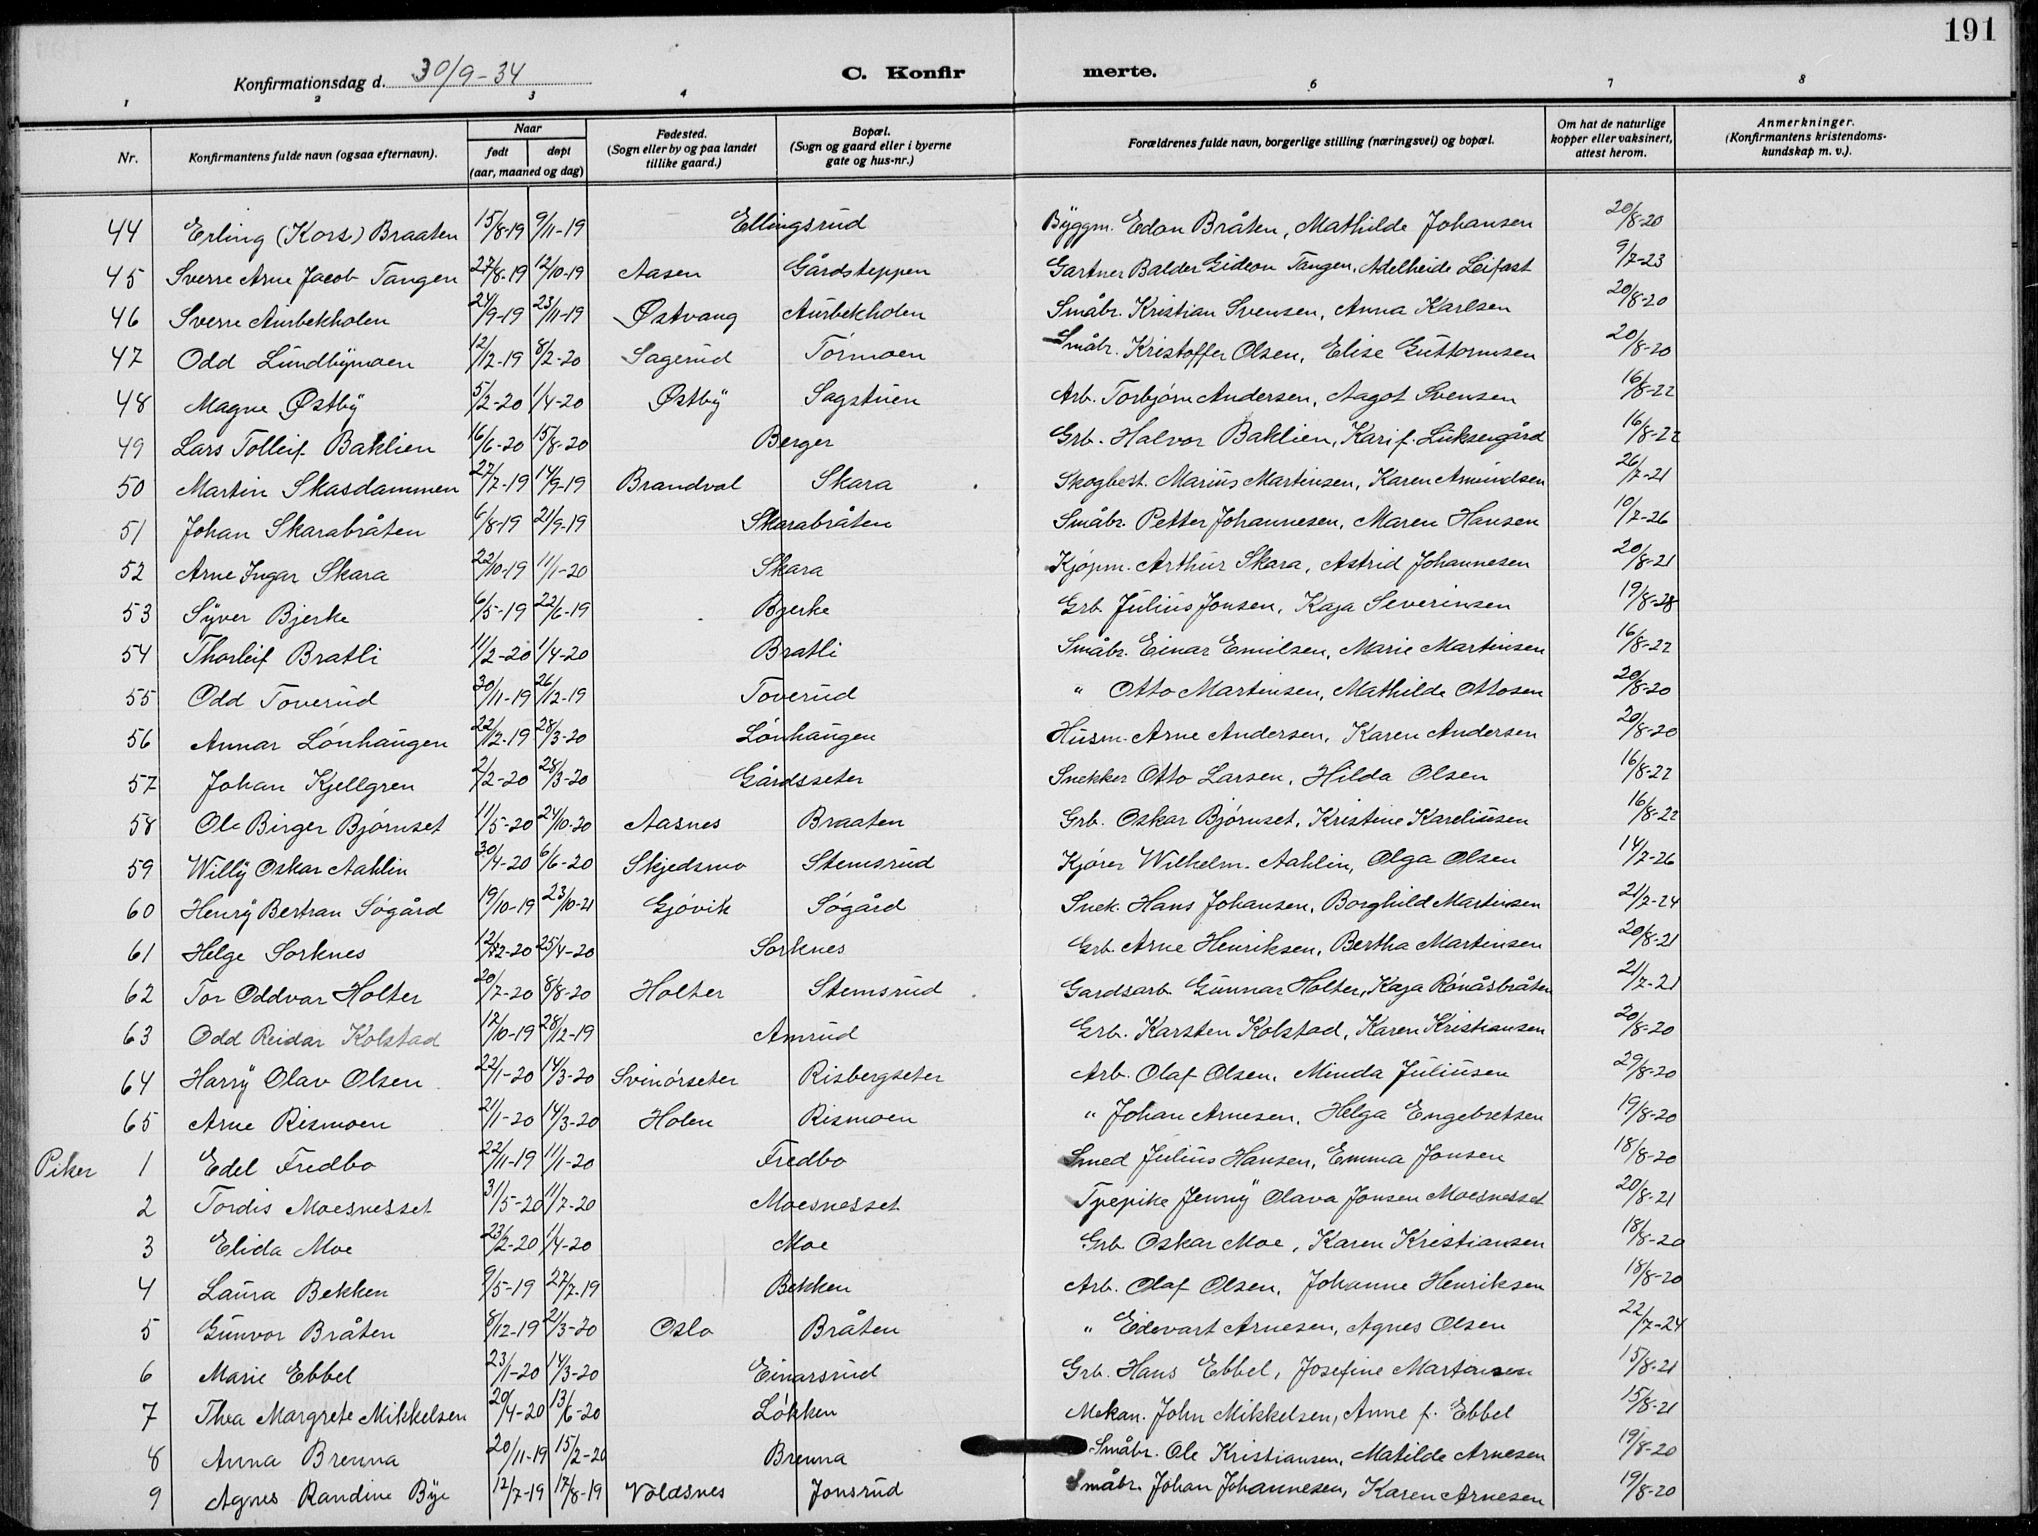 191
Konfirmationsdag d. 30/9-34 C. Konfirmerte.
1 2 3 4 6 7 8
Nr. Konfirmantens fulde navn (ogsaa efternavn). Naar født døpt (aar, maaned og dag) Fødested. (Sogn eller by og paa landet tillike gaard.) Bopæl. (Sogn og gaard eller i byerne gate og hus-nr.) Forældrenes fulde navn, borgerlige stilling (næringsvei) og bopæl. Om hat de naturlige kopper eller vaksinert, attest herom. Anmerkninger. (Konfirmantens kristendomskundskap m. v.).
44 Erling (Kors) Braaten 15/8-19 9/11-19 Ellingsrud Byggm. Edon Bråten, Mathilde Johansen 20/8-20
45 Sverre Arne Jacob Tangen 27/8-19 12/10-19 Aasen Gårdsteppen Gartner Balder Gideon Tangen, Adelheide Leifast 9/7-23
46 Sverre Aurbekholen 24/9-19 23/11-19 Østvang Aurbekholen Småbr. Kristian Svensen, Anna Karlsen 20/8-20
47 Odd Lundbymoen 12/12-19 8/2-20 Sagerud Tormoen Småbr. Kristoffer Olsen, Elise Guttormsen 20/8-20
48 Magne Østby 5/2-20 1/4-20 Østby Sagstuen Arb. Torbjørn Andersen, Aagot Svensen 16/8-22
49 Lars Tolleif Baklien 16/6-20 15/8-20 Berger Grb. Halvor Baklien, Kari f. Luksengård 16/8-22
50 Martin Skasdammen 27/7-19 14/9-19 Brandval Skara Skogbest. Marius Martinsen, Karen Amundsen 26/7-21
51 Johan Skarabråten 6/8-19 21/9-19 Skarabråten Småbr. Petter Johannesen, Maren Hansen 10/7-26
52 Arne Ingar Skara 22/10-19 11/1-20 Skara Kjøpm. Arthur Skara, Astrid Johannesen 20/8-21
53 Syver Bjerke 6/5-19 22/6-19 Bjerke Grb. Julius Jonsen, Kaja Severinsen 19/8-28
54 Thorleif Bratli 11/2-20 1/4-20 Bratli Småbr. Einar Emilsen, Marie Martinsen 16/8-22
55 Odd Toverud 30/11-19 26/12-19 Toverud " Otto Martinsen, Mathilde Ottosen 20/8-20
56 Annar Lønhaugen 22/12-19 28/3-20 Lønhaugen Husm. Arne Andersen, Karen Andersen 20/8-20
57 Johan Kjellgren 2/2-20 28/3-20 Gårdsseter Snekker Otto Larsen, Hilda Olsen 16/8-22
58 Ole Birger Bjørnset 11/5-20 24/10-20 Aasnes Braaten Grb. Oskar Bjørnset, Kristine Kareliusen 16/8-22
59 Willy Oskar Aahlin 30/4-20 6/6-20 Skjedsmo Stemsrud Kjører Wilhelm Aahlin, Olga Olsen 14/7-26
60 Henry Bertran Søgård 19/10-19 23/10-21 Gjøvik Søgård Snek. Hans Johansen, Borghild Martinsen 21/7-24
61 Helge Sorknes 12/2-20 25/4-20 Sorknes Grb. Arne Henriksen, Bertha Martinsen 20/8-21
62 Tor Oddvar Holter 20/7-20 8/8-20 Holter Stemsrud Gardsarb. Gunnar Holter, Kaja Rønåsbråten 21/7-21
63 Odd Reidar Kolstad 17/10-19 28/12-19 Amrud Grb. Karsten Kolstad, Karen Kristiansen 20/8-20
64 Harry Olav Olsen 22/1-20 14/3-20 Svinørseter Risbergseter Arb. Olaf Olsen, Minda Juliusen 29/8-20
65 Arne Rismoen 21/1-20 14/3-20 Holen Rismoen " Johan Arnesen, Helga Engebretsen 19/8-20
Piker 1 Edel Fredbo 22/11-19 11/1-20 Fredbo Smed Julius Hansen, Emma Jonsen 18/8-20
2 Tordis Moesnesset 31/5-20 11/7-20 Moesnesset Tjepike Jenny Olava Jonsen Moesnesset 20/8-21
3 Elida Moe 23/2-20 1/4-20 Moe Grb. Oskar Moe, Karen Kristiansen 18/8-20
4 Laura Bekken 9/5-19 27/7-19 Bekken Arb. Olaf Olsen, Johanne Henriksen 18/8-20
5 Gunvor Bråten 8/12-19 21/3-20 Oslo Bråten " Edevart Arnesen, Agnes Olsen 22/7-24
6 Marie Ebbel 23/1-20 14/3-20 Einarsrud Grb. Hans Ebbel, Josefine Martinsen 15/8-21
7 Thea Margrete Mikkelsen 20/4-20 13/6-20 Løkken Mekan. John Mikkelsen, Anne f. Ebbel 15/8-21
8 Anna Brenna 20/11-19 15/2-20 Brenna Småbr. Ole Kristiansen, Matilde Arnesen 19/8-20
9 Agnes Randine Bye 12/7-19 17/8-19 Voldsnes Jonsrud Småbr. Johan Johannesen, Karen Arnesen 19/8-20